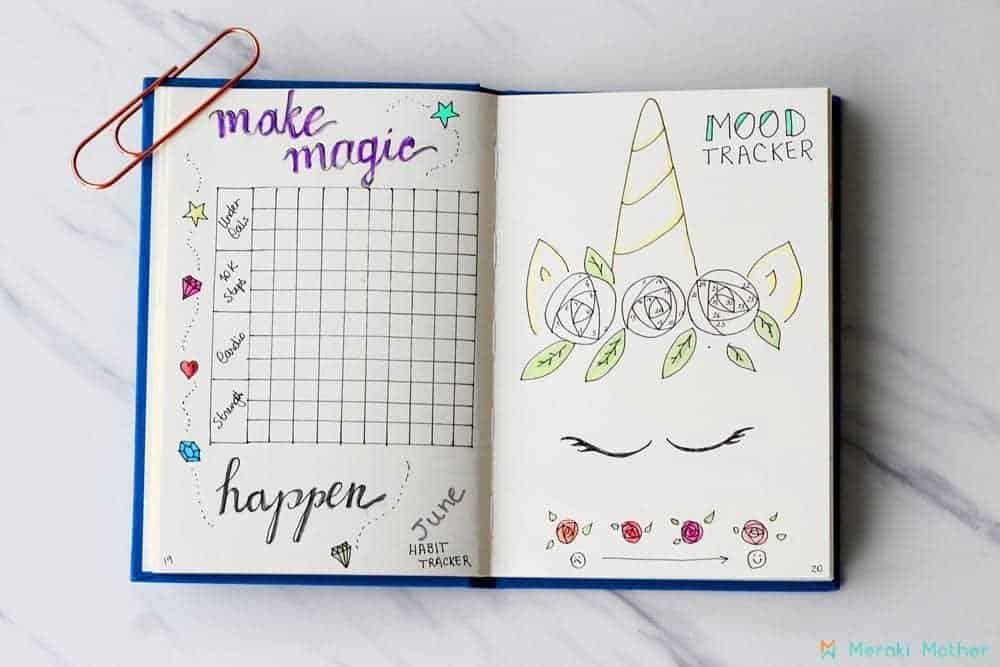 make
magic
Under
Cals
10K
Steps
Cardio
Strength
happen
June
HABIT
TRACKER
19
MOOD
TRACKER
20
Meraki Mother